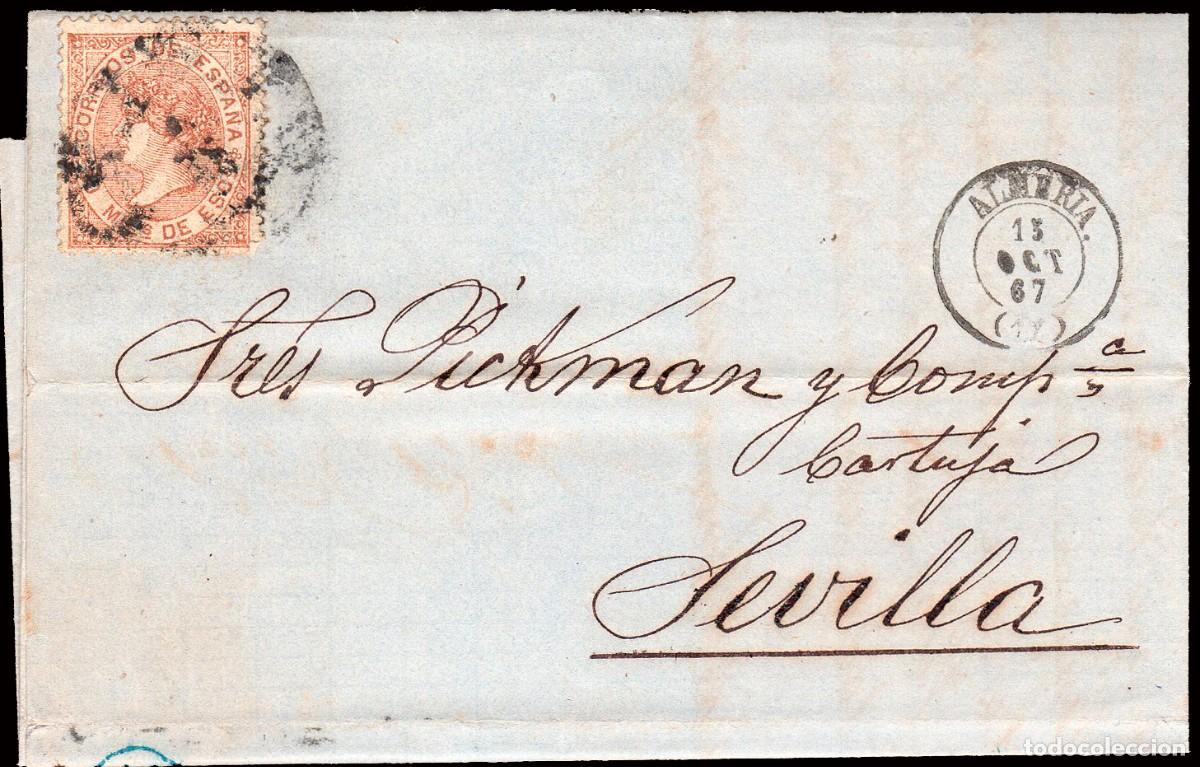 CORREOS DE ESPAÑA
MILS DE ESCO
ALMERIA.
15
OCT
67
Sres Pickman y Compª
Cartuja
Sevilla
todocoleccion